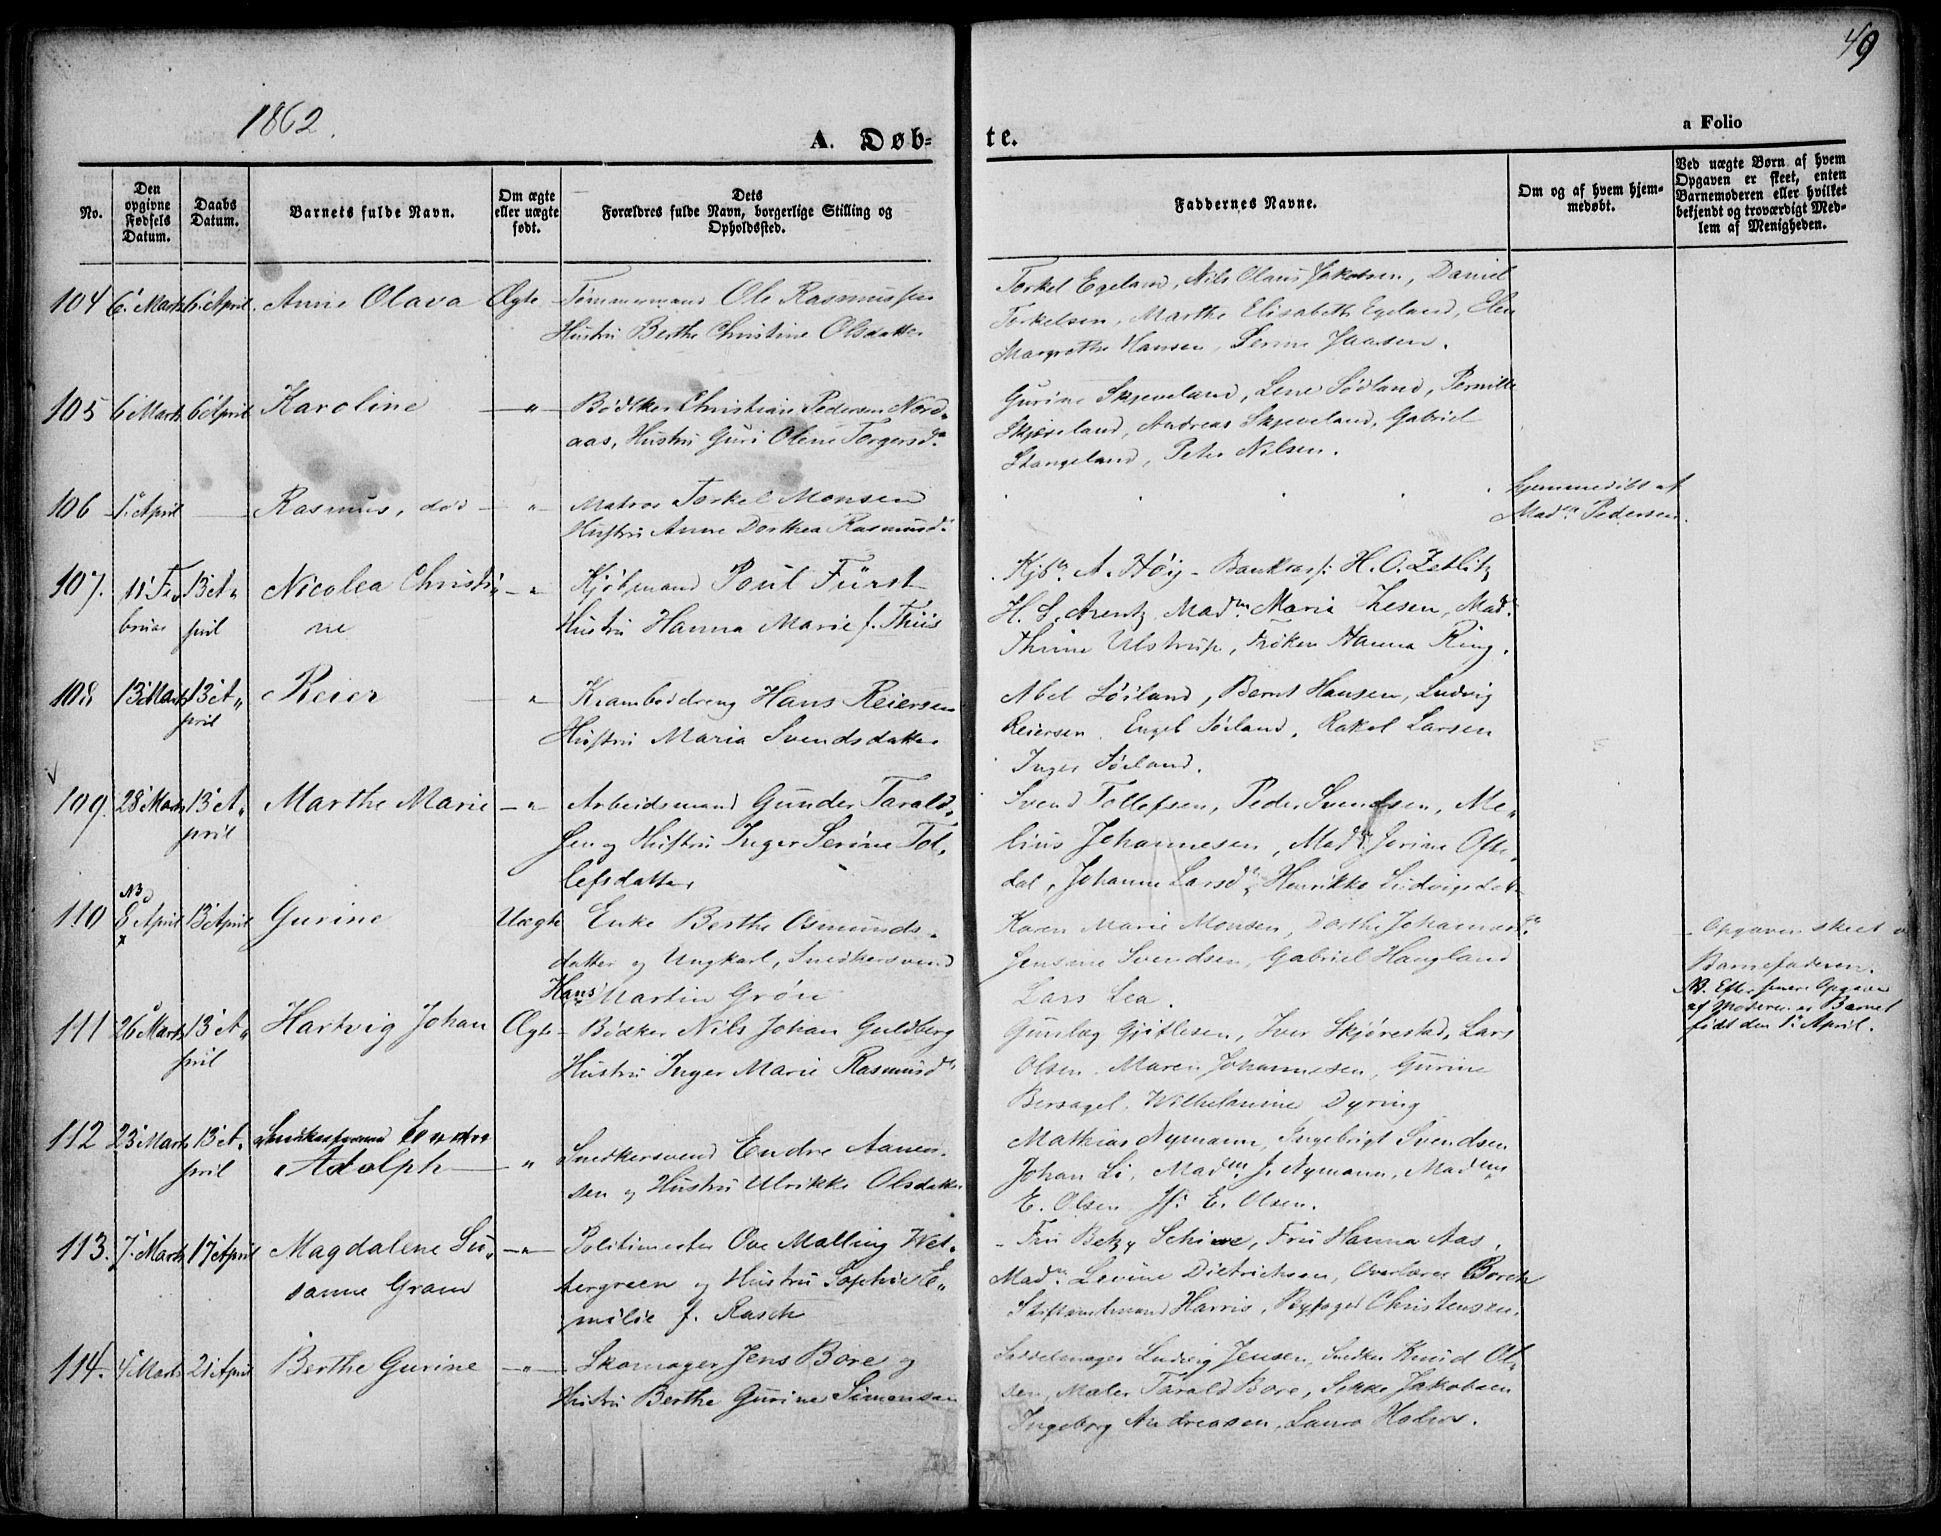 49
1862.
A. Døb=
te.
a Folio
No.
Den
opgivne
Fødsels
Datum.
Daabs
Datum.
Barnets fulde Navn.
Om ægte
eller uægte
født.
Dets
Forældres fulde Navn, borgerlige Stilling og
Opholdssted.
Faddernes Navne.
Om og af hvem hjem-
medøbt.
Ved uægte Børn af hvem
Opgaven er skeet, enten
Barnemoderen eller hvilket
bekjendt og troværdigt Med-
lem af Menigheden.
104 6' Marts 6' April. Anne Olava Ægte Tømmermand Ole Rasmussen
Hustru Berthe Christine Olsdatter
Torkel Egeland, Nils Olaus Jakobsen, Daniel
Torkelsen, Marthe Elisabeth Egeland, Elen
Margrethe Hansen, Serine Jaasen.
105 6' Marts 6' April Karoline — " — Bødker Christian Pedersen Nord-
aas, Hustru Guri Olene Torgersd.
Gurine Skjeveland, Lene Sødland, Pernille
Skjeveland, Andreas Skjeveland, Gabriel
Stangeland, Peter Nilsen.
106 1' April — Rasmus, død — " Matros Torkel Monsen
Hustru Anne Dorthea Rasmusd.
hjemmedøbt af
Mad. Pedersen.
107. 11' Fe- 13' A- Nicolea Christi- — " Kjøbmand Poul Fürst
bruar pril ne Hustru Hanna Marie f. Thiis
Kjbm. A. Høy - Bankkass: H. O. Zetlitz
H. S. Arentz, Madm. Maria Lesen, Mad.
Thrine Ulstrup, Frøken Hanna Ring.
108 13' Marts 13' A- Reier — " Kramboddreng Hans Reiersen
pril Hustru Maria Svendsdatter
Abel Søiland, Bernt Hansen, Ludvig
Reiersen, Engel Søiland, Rakel Larsen
Inger Søiland.
109. 28' Marts 13' A- Marthe Marie — " Arbeidsmand Gunder Tarald-
pril sen og Hustru Inger Serine Tol-
lefsdatter
Svend Tollefsen, Peder Svendsen, Me-
lius Johannesen, Mad. Jorine Ofte-
dal, Johanne Larsd. Henrikke Ludvigsdat
NB
110 8' April 13' April Gurine Uægte Enke Berthe Osmunds-
x datter og Ungkarl, Snedkersvend
Hans Martin Grøn
Karen Marie Monsen, Dorthe Johannesd.
Jensine Svendsen, Gabriel Haugland
Lars Lea.
Opgaven skeet
Barnefaderen.
NB. Efter senere Opgave
af Moderen er Barnet
født den 1' April.
111 26' Marts 13' A- Hartvig Johan Ægte Bødker Nils Johan Guldberg
pril Hustru Inger Marie Rasmusd.
Gunlag Gjitlesen, Iver Skjørestad, Lars
Olsen, Maren Johannesen, Gurine
Bersagel, Wilhelmine Dyring
112 23' Marts 13' A- Endre
pril Adolph — " Snedkersvend Endre Aanen-
sen og Hustru Ulrikke Olsdatter
Mathias Nymann, Ingebrigt Svendsen
Johan Li, Madm. J. Nymann, Madm.
E. Olsen Jf: E. Olsen.
113. 7' Marts 17' April Magdalene Su- — " — Politimester Ove Malling Wet-
sanne Gram tergreen og Hustru Sophie E-
milie f. Rasch
Fru Betzy Schiøe, Fru Hanna Aas,
Madm. Levine Dietrichsen, Overlærer Borch
Stiftamtmand Harris, Byfoged Christensen.
114. 4' Marts 21' April Berthe Gurine — " — Skomager Jens Bore og
Hustru Berthe Gurine Simonsen
Saddelmager Ludvig Jensen, Snedker Knud Ol-
sen, Maler Tarald Bore, Sikke Jakobsen
Ingeborg Andreasen, Laura